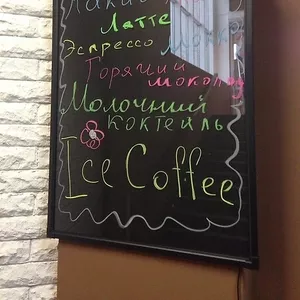 Латте
Эспрессо
Горячий
шоколад
Молочный
коктейль
Ice Coffee